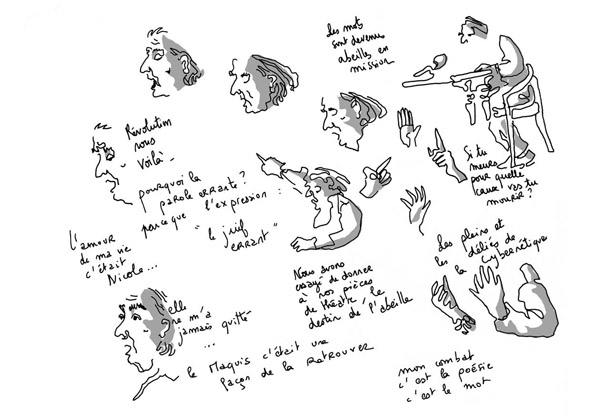 Les mots
sont devenus
abeilles en
mission
Révolution
nous
voilà-
pourquoi la
parole errante?
parce que l'expression :
"le juif
errant"
Si tu
meurs
pour quelle
cause vas tu
mourir?
L'amour
de ma vie
c'était
Nicole...
elle
ne m'a
jamais quitté
...
le Maquis c'était une
façon de la Retrouver
Nous avons
essayé de donner
à nos pièces
de théâtre le
destin de l'abeille
des pleins et
les déliés de
la cybernétique
mon combat
c'est la poésie
c'est le mot